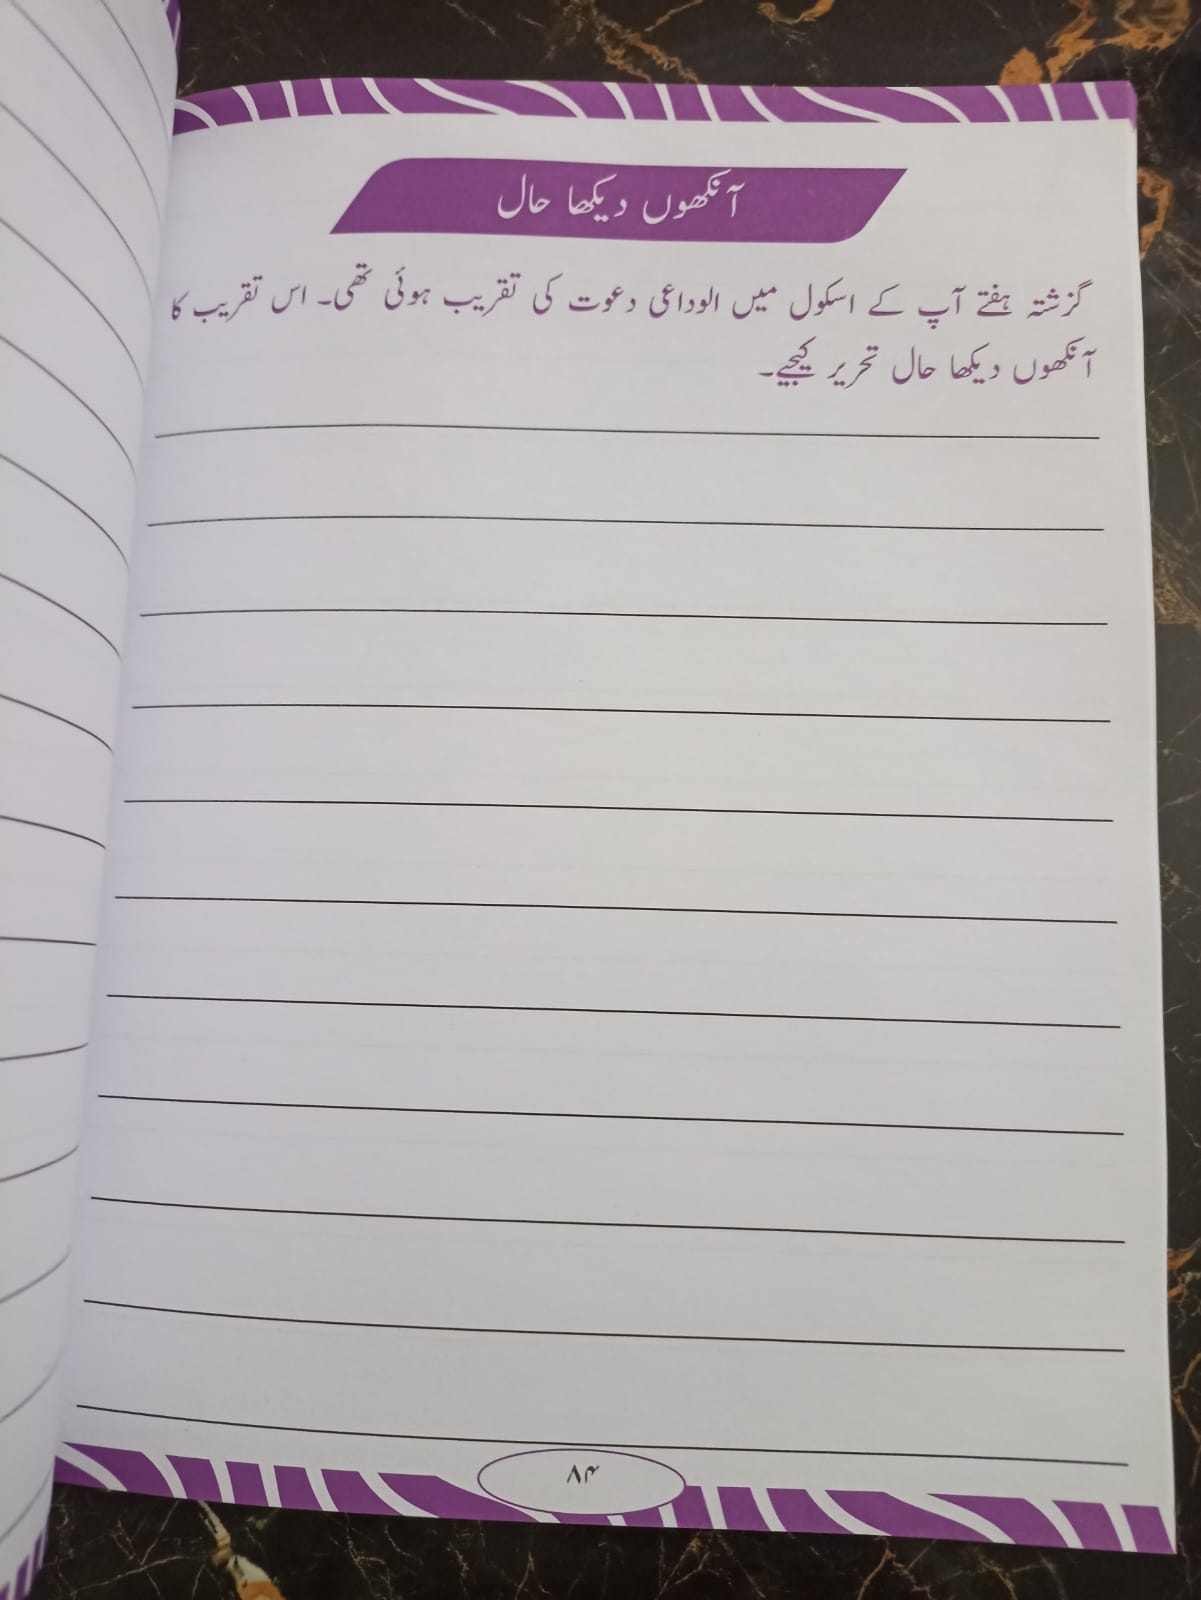 آنکھوں دیکھا حال
گزشتہ ہفتے آپ کے اسکول میں الوداعی دعوت کی تقریب ہوئی تھی۔ اس تقریب کا
آنکھوں دیکھا حال تحریر کیجیے۔
۸۴